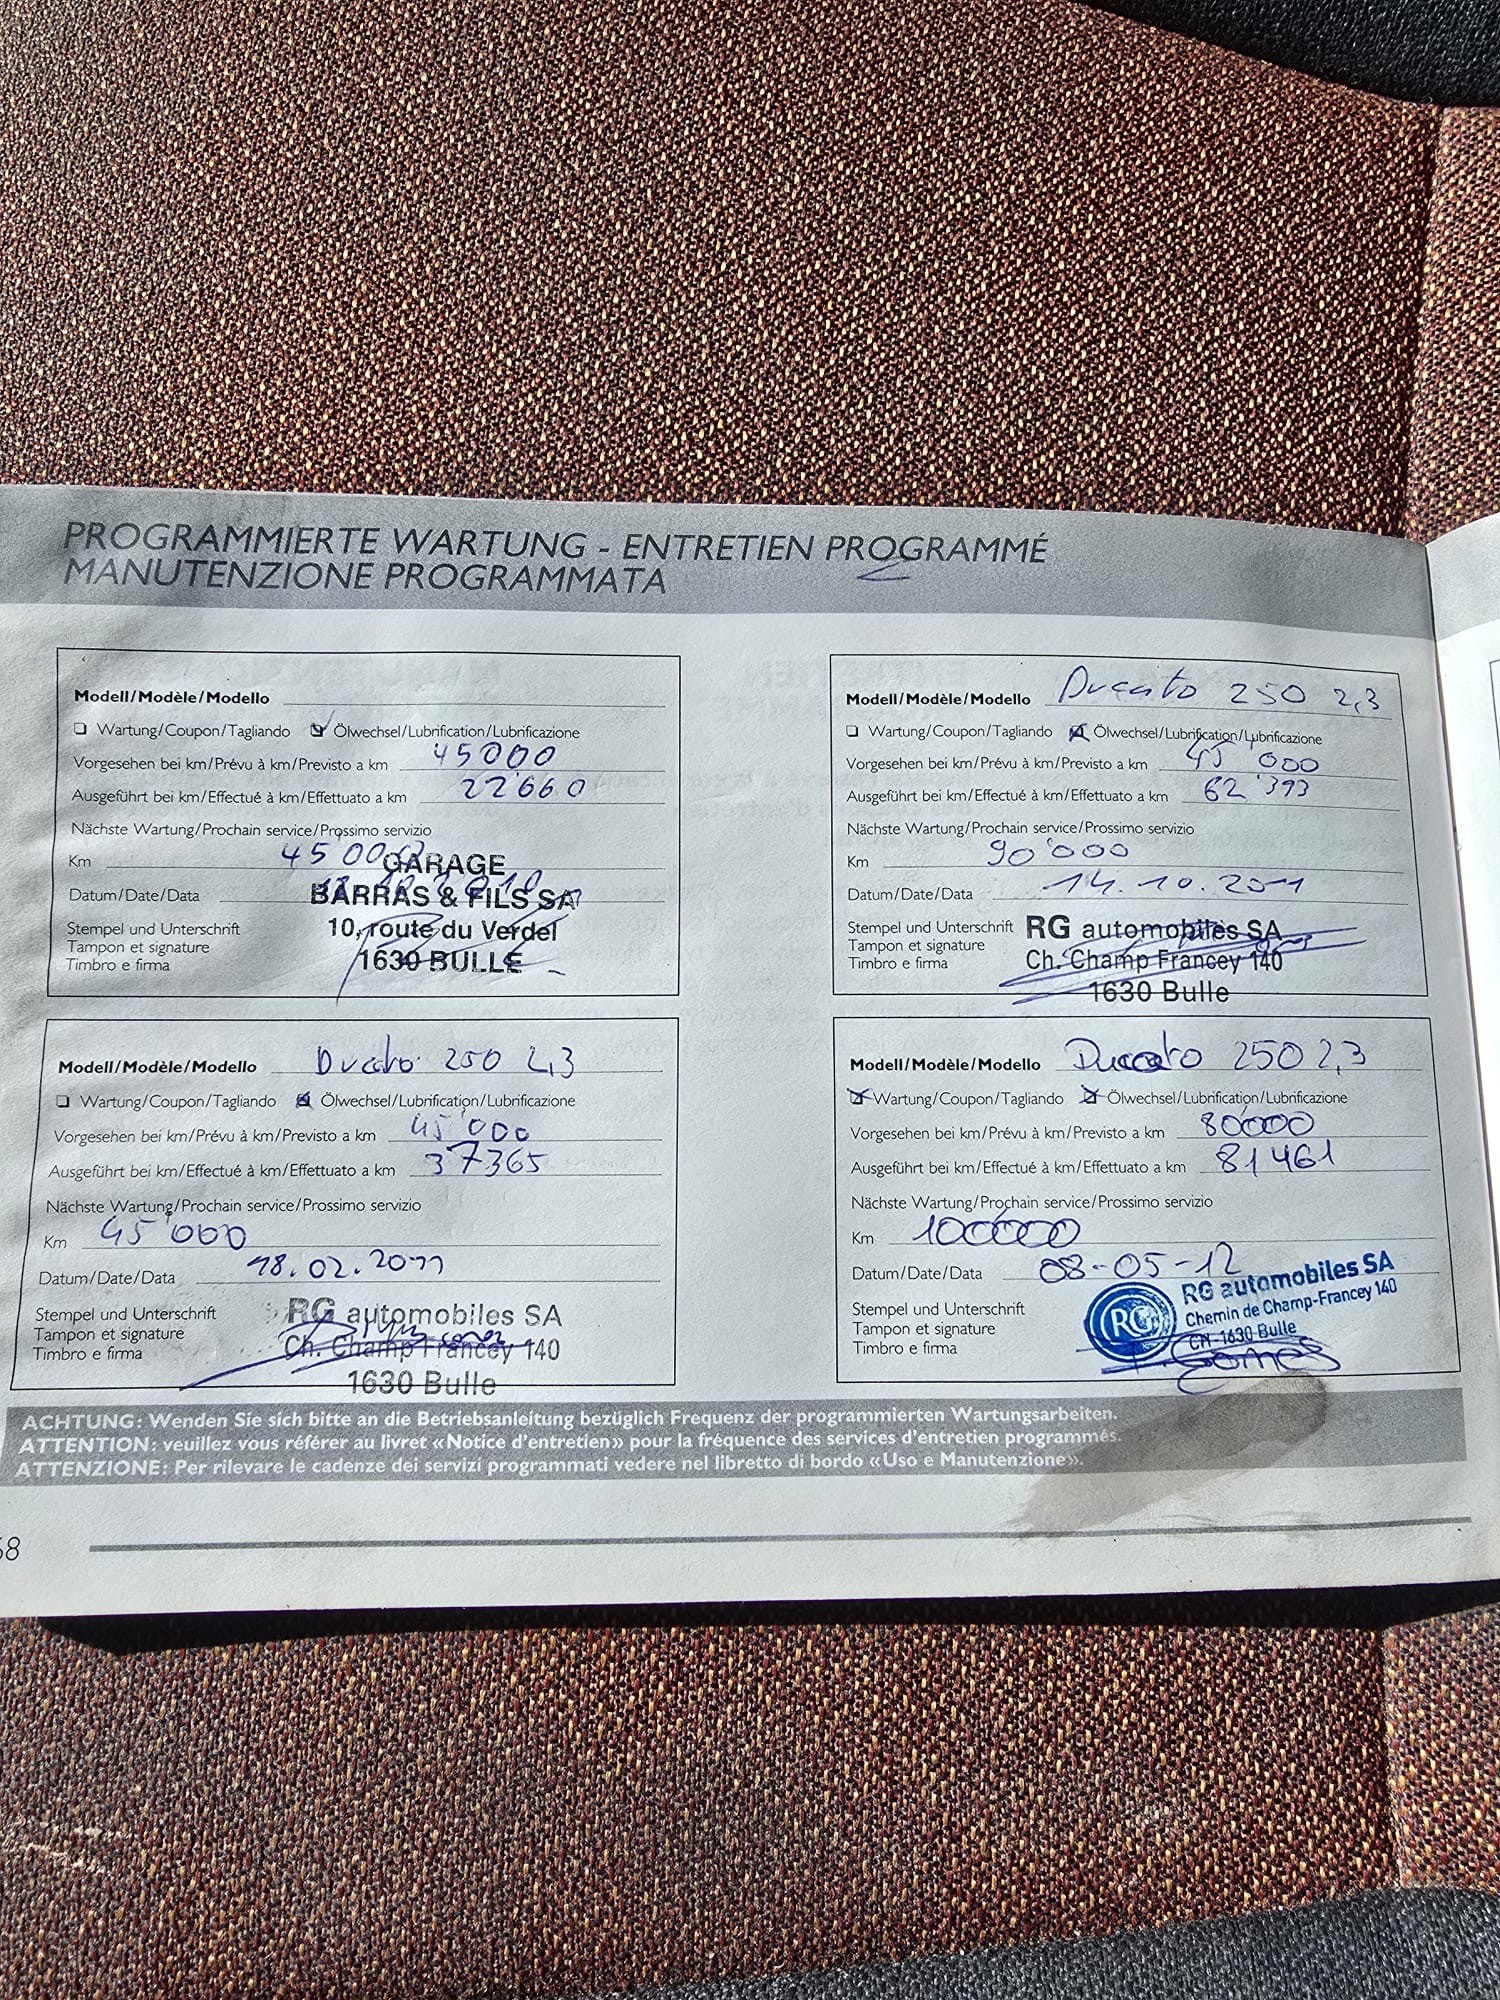 PROGRAMMIERTE WARTUNG - ENTRETIEN PROGRAMMÉ
MANUTENZIONE PROGRAMMATA
Modell/Modèle/Modello
Wartung/Coupon/Tagliando Ölwechsel/Lubrification/Lubrificazione
Vorgesehen bei km/Prévu à km/Previsto a km 45000
Ausgeführt bei km/Effectué à km/Effettuato a km 22'660
Nächste Wartung/Prochain service/Prossimo servizio
Km 45'000
GARAGE
Datum/Date/Data
BARRAS & FILS SA
Stempel und Unterschrift 10, route du Verdel
Tampon et signature
Timbro e firma 1630 BULLE
Modell/Modèle/Modello Ducato 250 2,3
Wartung/Coupon/Tagliando Ölwechsel/Lubrification/Lubrificazione
Vorgesehen bei km/Prévu à km/Previsto a km 45'000
Ausgeführt bei km/Effectué à km/Effettuato a km 37365
Nächste Wartung/Prochain service/Prossimo servizio
Km 45'000
Datum/Date/Data 18.02.2011
Stempel und Unterschrift RG automobiles SA
Tampon et signature Ch. Champ Francey 140
Timbro e firma
1630 Bulle
Modell/Modèle/Modello Ducato 250 2,3
Wartung/Coupon/Tagliando Ölwechsel/Lubrification/Lubrificazione
Vorgesehen bei km/Prévu à km/Previsto a km 45 000
Ausgeführt bei km/Effectué à km/Effettuato a km 62'393
Nächste Wartung/Prochain service/Prossimo servizio
Km 90'000
Datum/Date/Data 14.10.2011
Stempel und Unterschrift RG automobiles SA
Tampon et signature
Timbro e firma Ch. Champ Francey 140
1630 Bulle
Modell/Modèle/Modello Ducato 250 2,3
Wartung/Coupon/Tagliando Ölwechsel/Lubrification/Lubrificazione
Vorgesehen bei km/Prévu à km/Previsto a km 80000
Ausgeführt bei km/Effectué à km/Effettuato a km 81461
Nächste Wartung/Prochain service/Prossimo servizio
Km 100000
Datum/Date/Data 08-05-12
RG RG automobiles SA
Stempel und Unterschrift Chemin de Champ-Francey 140
Tampon et signature CH-1630 Bulle
Timbro e firma Gomes
ACHTUNG: Wenden Sie sich bitte an die Betriebsanleitung bezüglich Frequenz der programmierten Wartungsarbeiten.
ATTENTION: veuillez vous référer au livret «Notice d'entretien» pour la fréquence des services d'entretien programmés.
ATTENZIONE: Per rilevare le cadenze dei servizi programmati vedere nel libretto di bordo «Uso e Manutenzione».
68